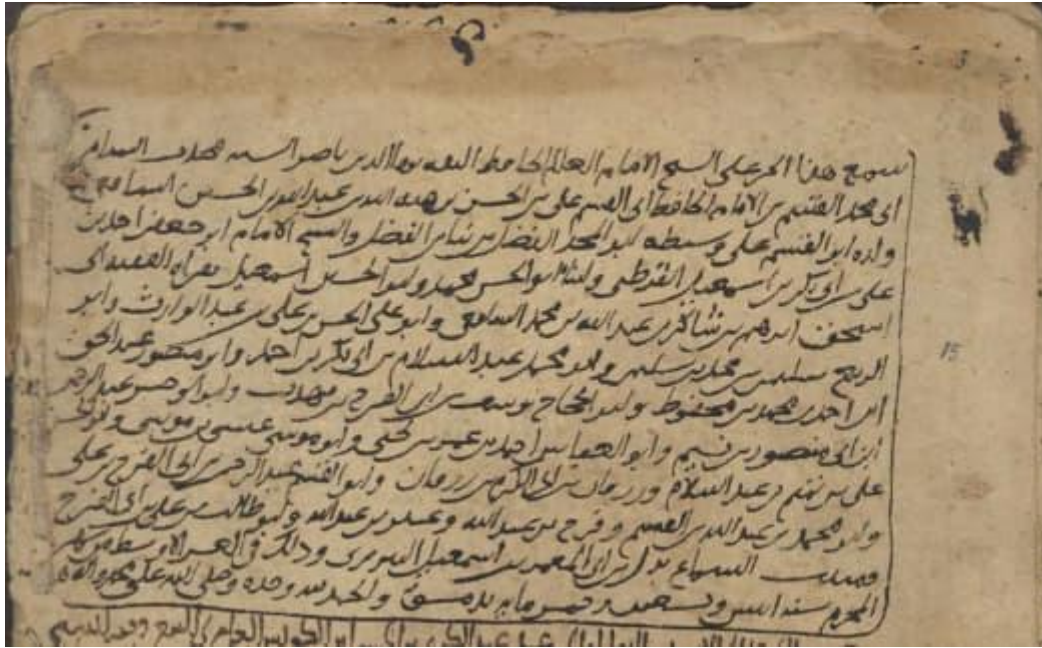 سمع هذا الجزء على الشيخ الامام العالم الحافظ الثقه بها الدين ناصر السنه محدث الشام
ابي محمد القسم بن الامام الحافظ ابي القسم علي بن الحسن بن هبه الله بن عبد الله بن الحسين الشافعي
ولده ابو القسم علي وسبطه ابو المجد الفضل بن نبا بن الفضل والشيخ الامام ابو جعفر احمد بن
علي بن ابي بكر بن اسمعيل القرطبي وابناه ابو الحسن محمد وابو الحسين اسمعيل بقراه الفقيه ابي
اسحق ابرهيم بن شاكر بن عبد الله بن محمد الشافعي وابو علي الحسن بن علي بن عبد الوارث وابو
الربيع سليمن بن محمد بن سليمن وابو محمد عبد السلام بن ابي بكر بن احمد وابو منصور عبد الحق
ابن احمد بن محمد بن محفوظ وابو الحجاج يوسف بن ابي الفرج بن مهذب وابو الوحش عبد الرحمن
ابن ابي منصور بن نسيم وابو العباس احمد بن عمر بن وابو موسى عيسى بن موسى
علي بن تميم بن عبد السلام بن ابي الكرم بن وابو الفتح عبد الرحمن بن ابي الفرج بن علي
وابو محمد بن عبد الله بن القسم وفرج بن عبد الله وعبد الله وابو طالب بن علي بن ابي الفرج
ومثبت السماع بدل بن ابي المعمر بن اسمعيل التبريزي وذلك في العشر الاوسط من شهر
المحرم سنه اثنين وتسعين وخمس مايه بدمشق والحمد لله وحده وصلى الله على محمد واله
15